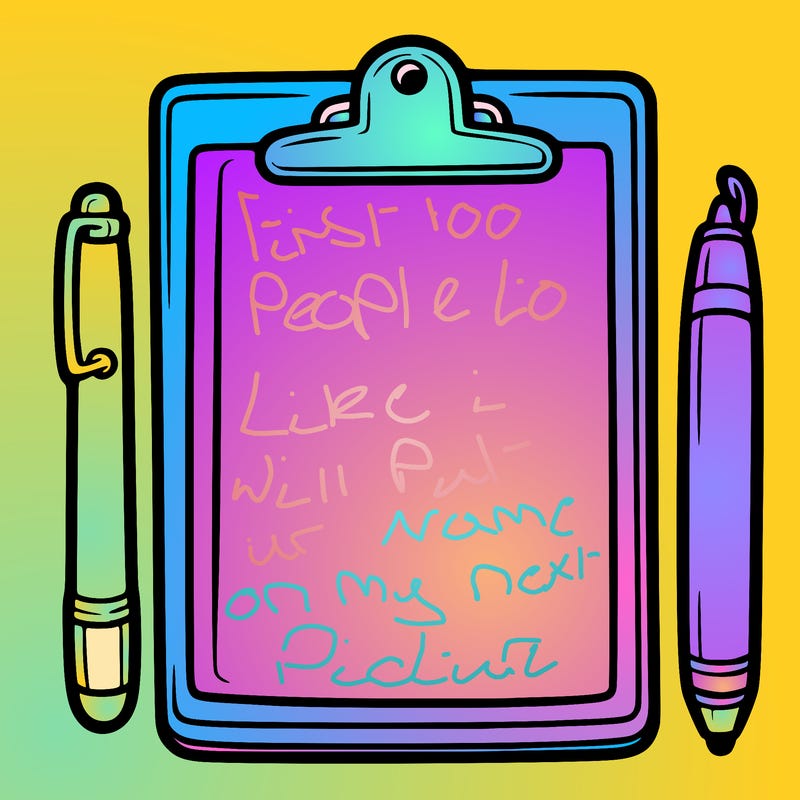 First 100
People to
Like i
Will Put
ur Name
on my next
Picture